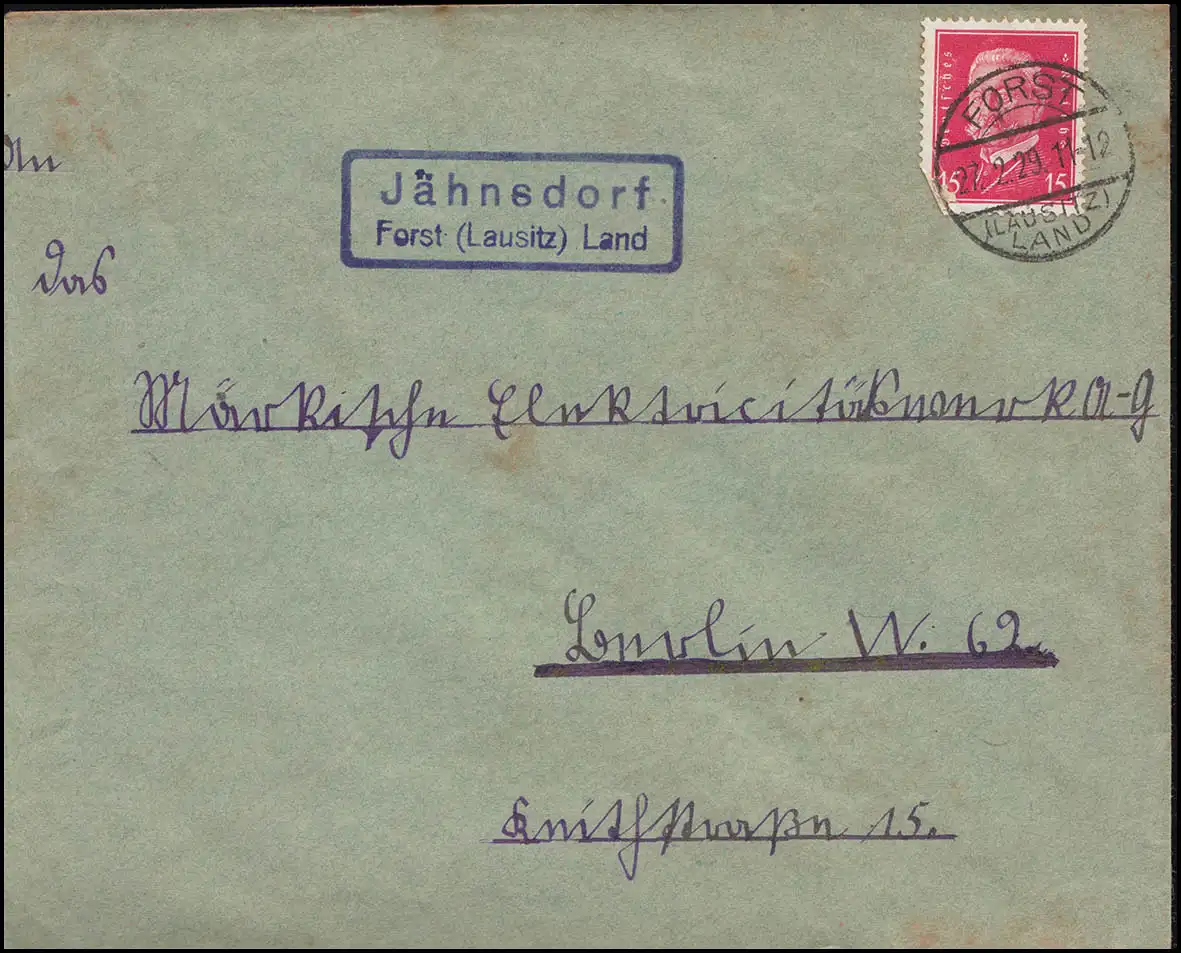 Deutsches Reich
15 15
FORST
27.2.29.11-12
(LAUSITZ)
LAND
An
Jähnsdorf
Forst (Lausitz) Land
das
Märkische Elektricitätswerk A-G
Berlin W. 62.
Keithstraße 15.